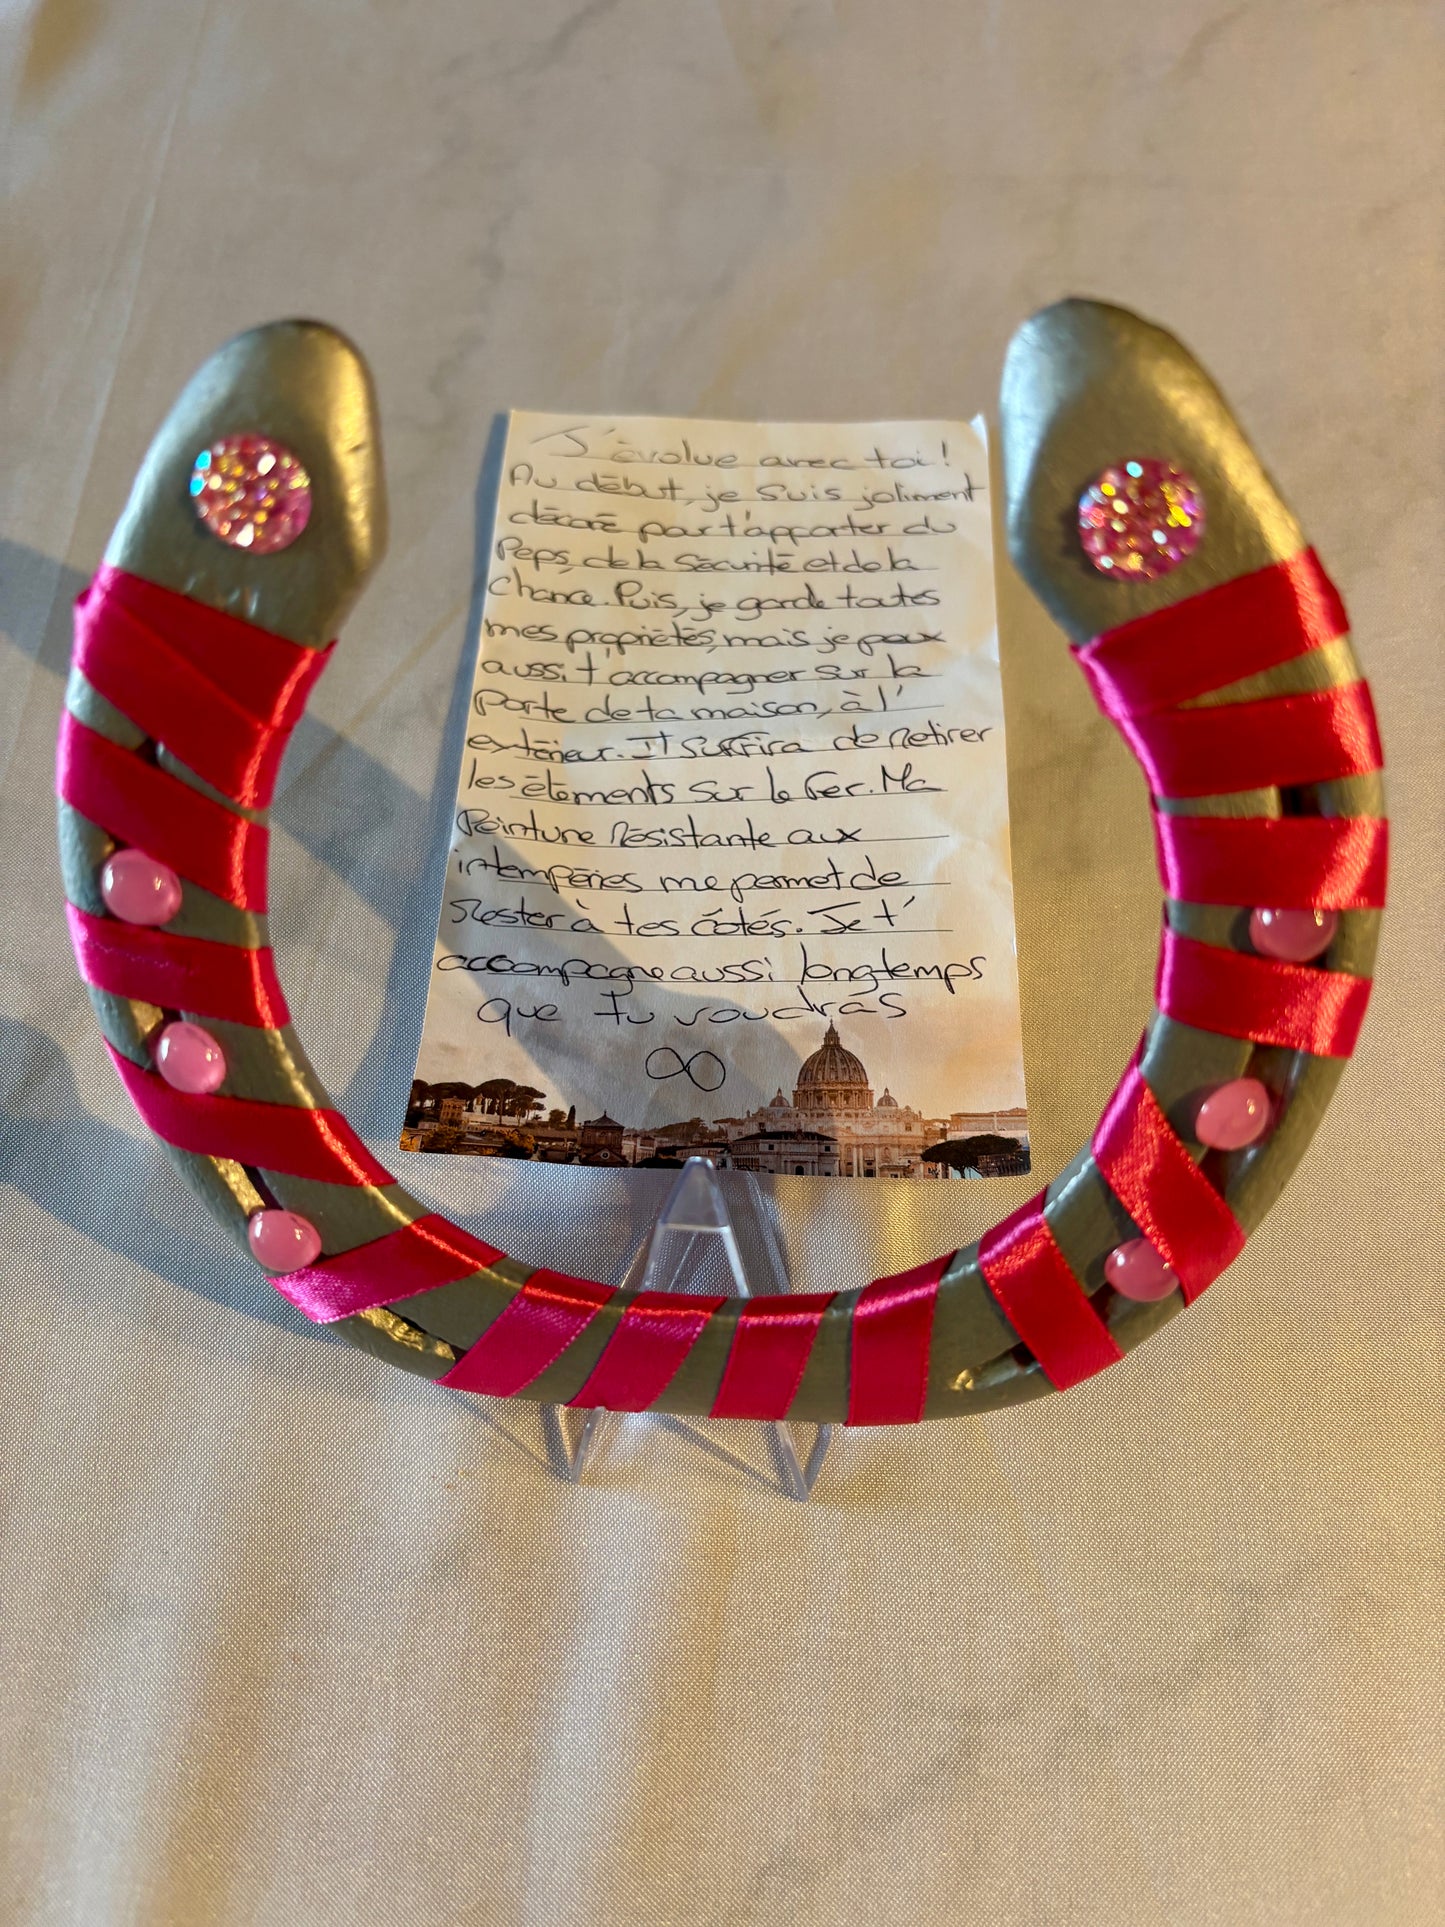 J'évolue avec toi!
Au début, je suis joliment
décoré pour t'apporter du
Peps, de la Sécurité et de la
chance. Puis, je garde toutes
mes propriétés, mais je peux
aussi t'accompagner sur la
Porte de ta maison, à l'
extérieur. Il suffira de Retirer
les éléments sur le Fer. Ma
Peinture Résistante aux
intempéries me permet de
Rester à tes côtés. Je t'
accompagne aussi longtemps
que tu voudras
∞